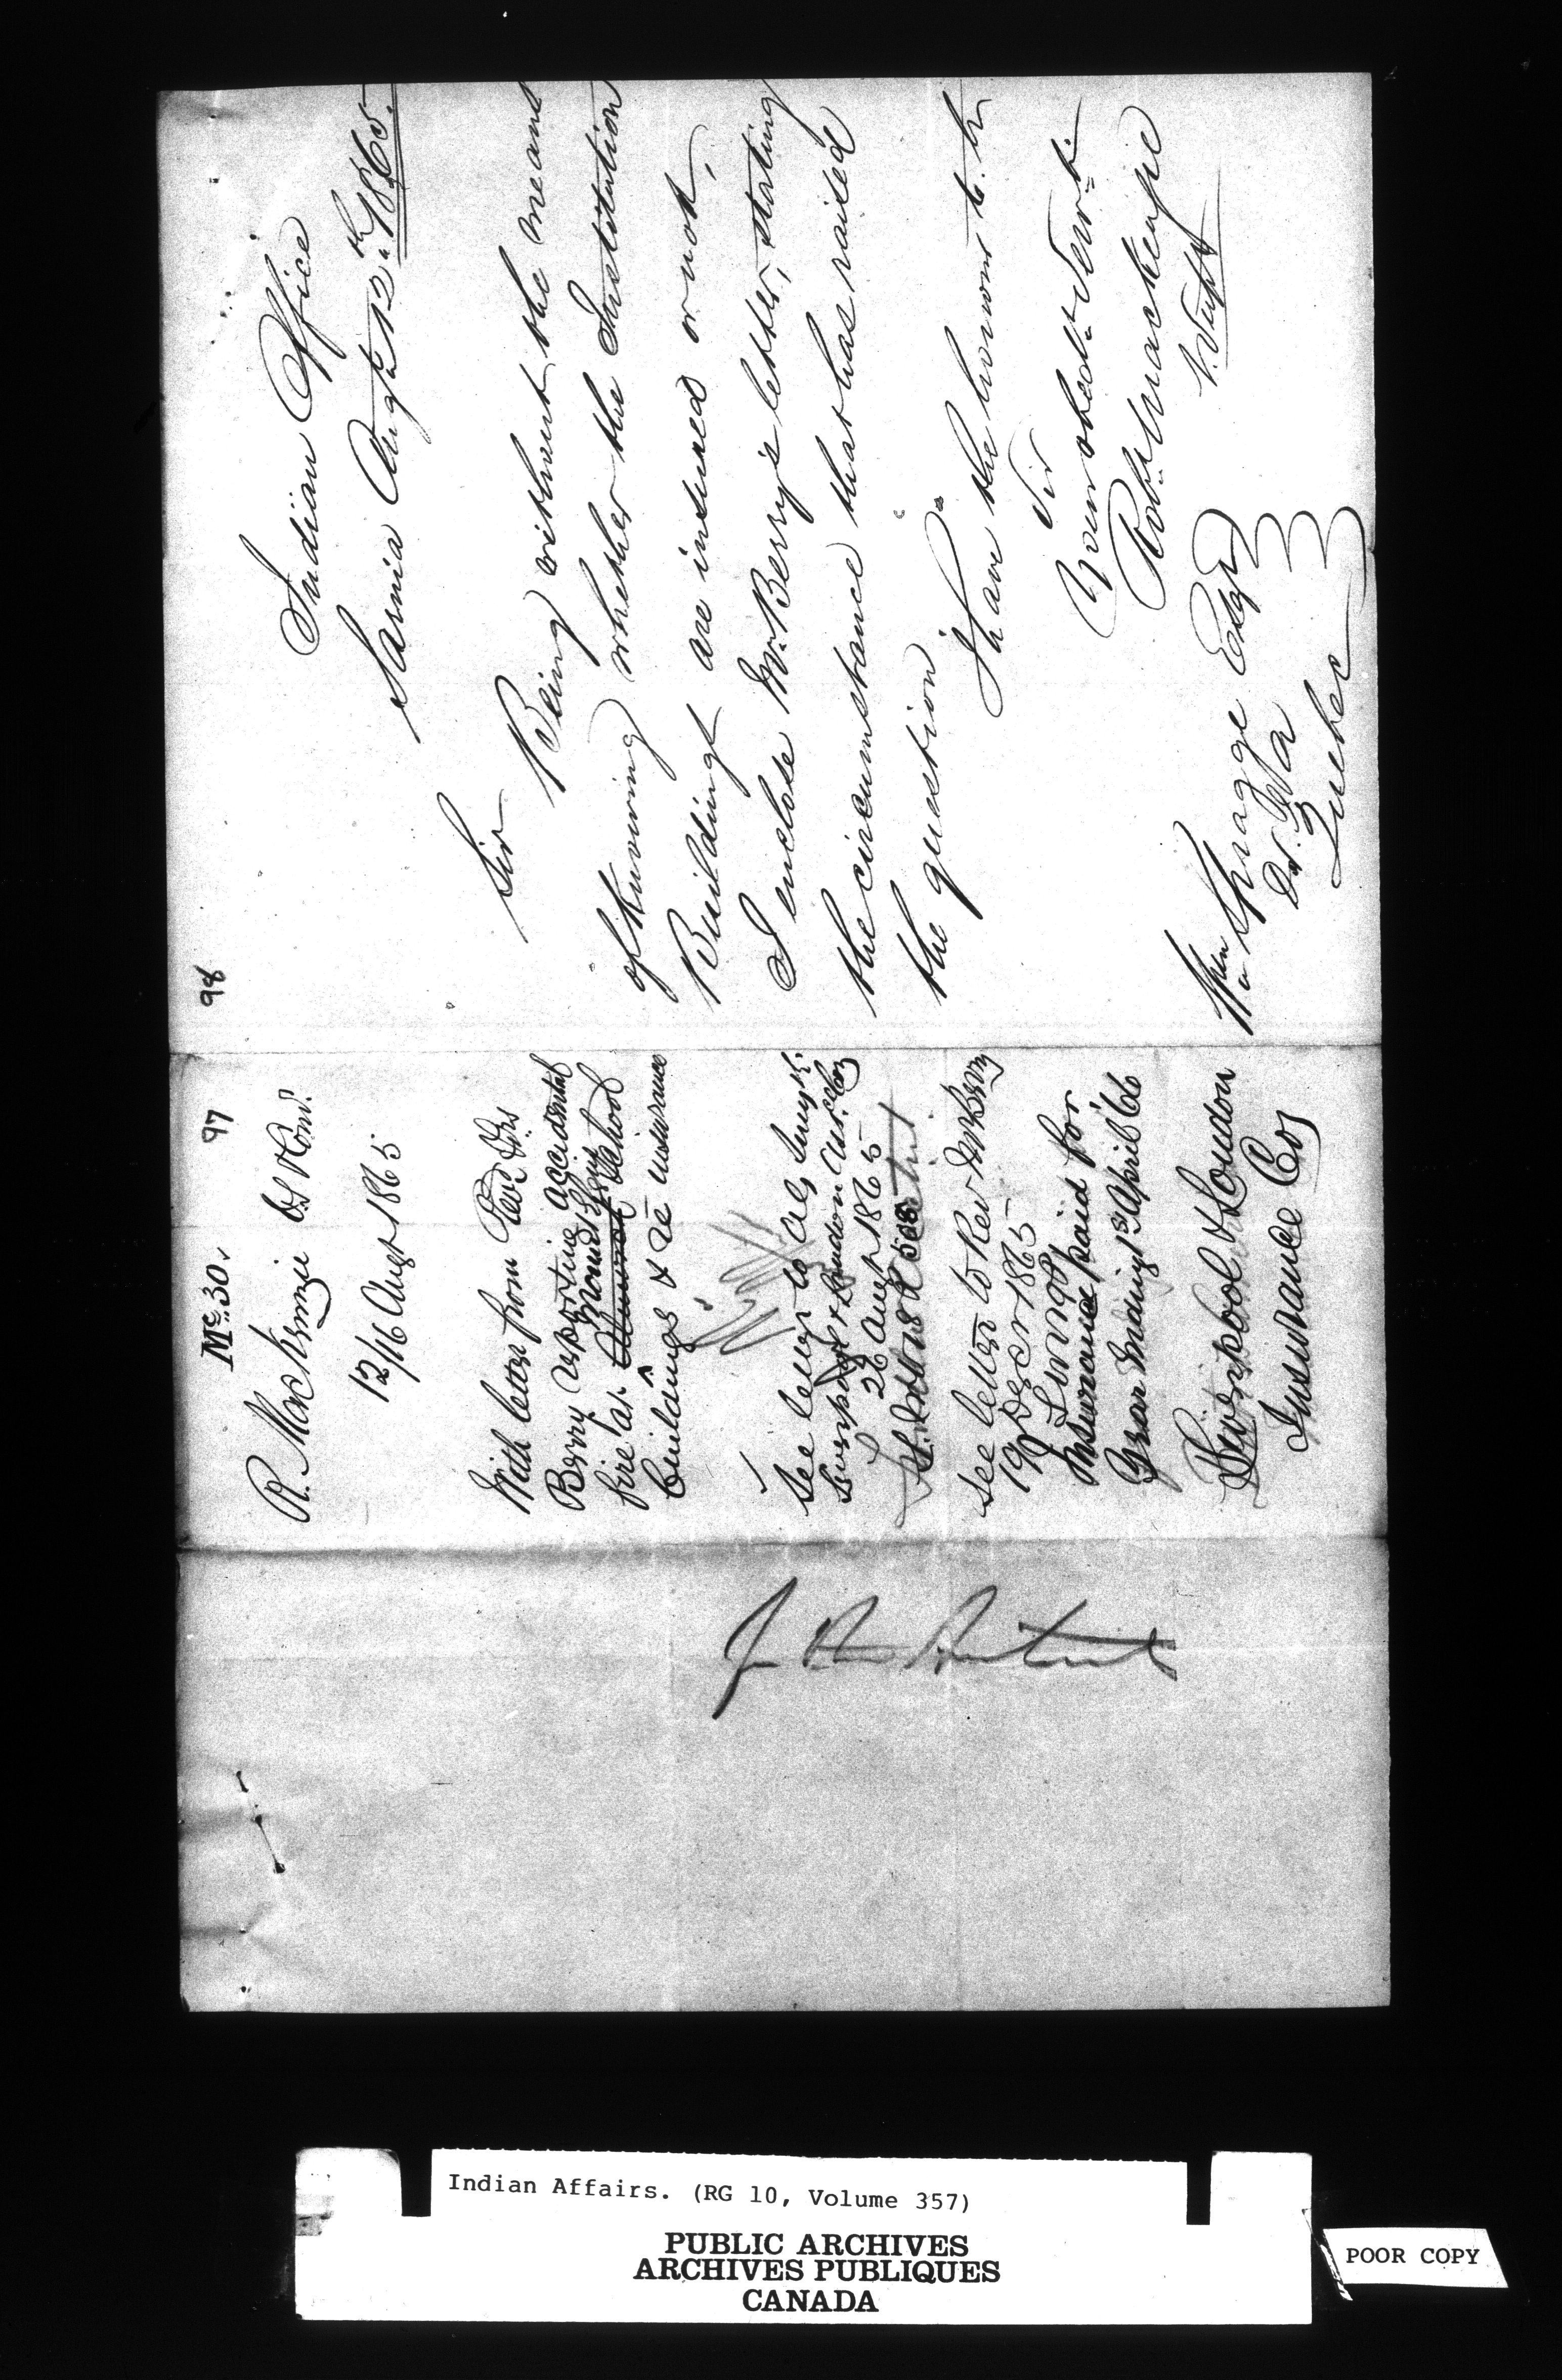 98
Indian Office
Sarnia Augt 12th 1865.
Sir
Being without the means
of knowing whether the Institution
Buildings are insured or not,
I enclose Mr. Berry's letter, stating
the circumstance that has raised
the question.
I have the honour to be
Sir
Your obedt. Servt.
Robt. Mackenzie
V. Supt
Wm Spragge Esqr
D.S.
Quebec
97
Mc. 30.
R. Mackenzie
12/16 Augt 1865
With letter from Revd
Berry reporting accidental
fire at Mount Elgin School
Buildings & re insurance
See letter to
Liverpool & London
26 Augt 1865
see letter to Rev Mr Berry
19 Decr 1865
Insurance paid for
Year ending 1st April '66
Liverpool & London
Insurance Co
Indian Affairs. (RG 10, Volume 357)
PUBLIC ARCHIVES
ARCHIVES PUBLIQUES
CANADA
POOR COPY